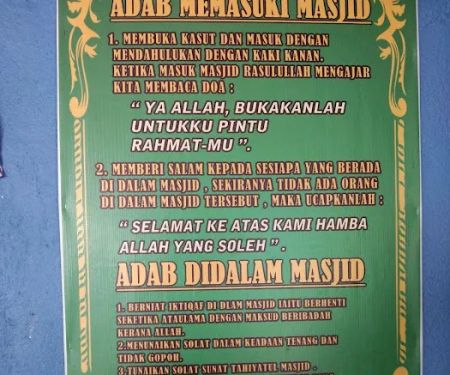 ADAB MEMASUKI MASJID
1. MEMBUKA KASUT DAN MASUK DENGAN
MENDAHULUKAN DENGAN KAKI KANAN.
KETIKA MASUK MASJID RASULULLAH MENGAJAR
KITA MEMBACA DOA :
“ YA ALLAH, BUKAKANLAH
UNTUKKU PINTU
RAHMAT-MU ”.
2. MEMBERI SALAM KEPADA SESIAPA YANG BERADA
DI DALAM MASJID , SEKIRANYA TIDAK ADA ORANG
DI DALAM MASJID TERSEBUT , MAKA UCAPKANLAH :
“ SELAMAT KE ATAS KAMI HAMBA
ALLAH YANG SOLEH ” .
ADAB DIDALAM MASJID
1. BERNIAT IKTIQAF DI DLAM MASJID IAITU BERHENTI
SEKETIKA ATAULAMA DENGAN MAKSUD BERIBADAH
KERANA ALLAH.
2.MENUNAIKAN SOLAT DALAM KEADAAN TENANG DAN
TIDAK GOPOH.
3.TUNAIKAN SOLAT SUNAT TAHIYATUL MASJID .